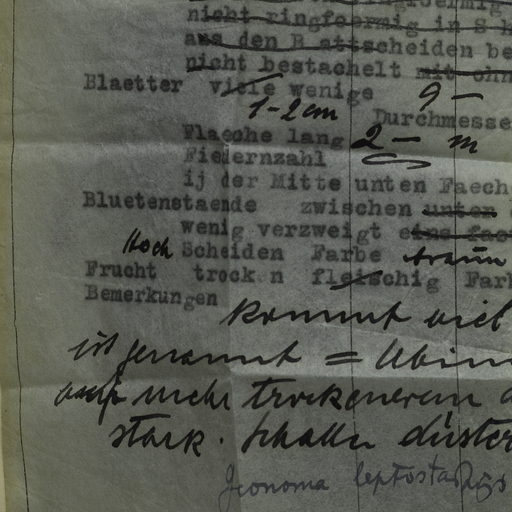 nicht ringfoermig in S h
aus den B attscheiden be
nicht bestachelt mit ohn
Blaetter viele wenige 9 —
1-2 cm Durchmesse
Flaeche lang 2 — m
Fiedernzahl
ij der Mitte unten Faech
Bluetenstaende zwischen unten
wenig verzweigt eins fac
Hoch Scheiden Farbe braun
Frucht trock n fleischig Farb
Bemerkungen
kommt viel
ist genannt =
auf mehr trockenerem
stark. Schatten düster
Geonoma leptostachys